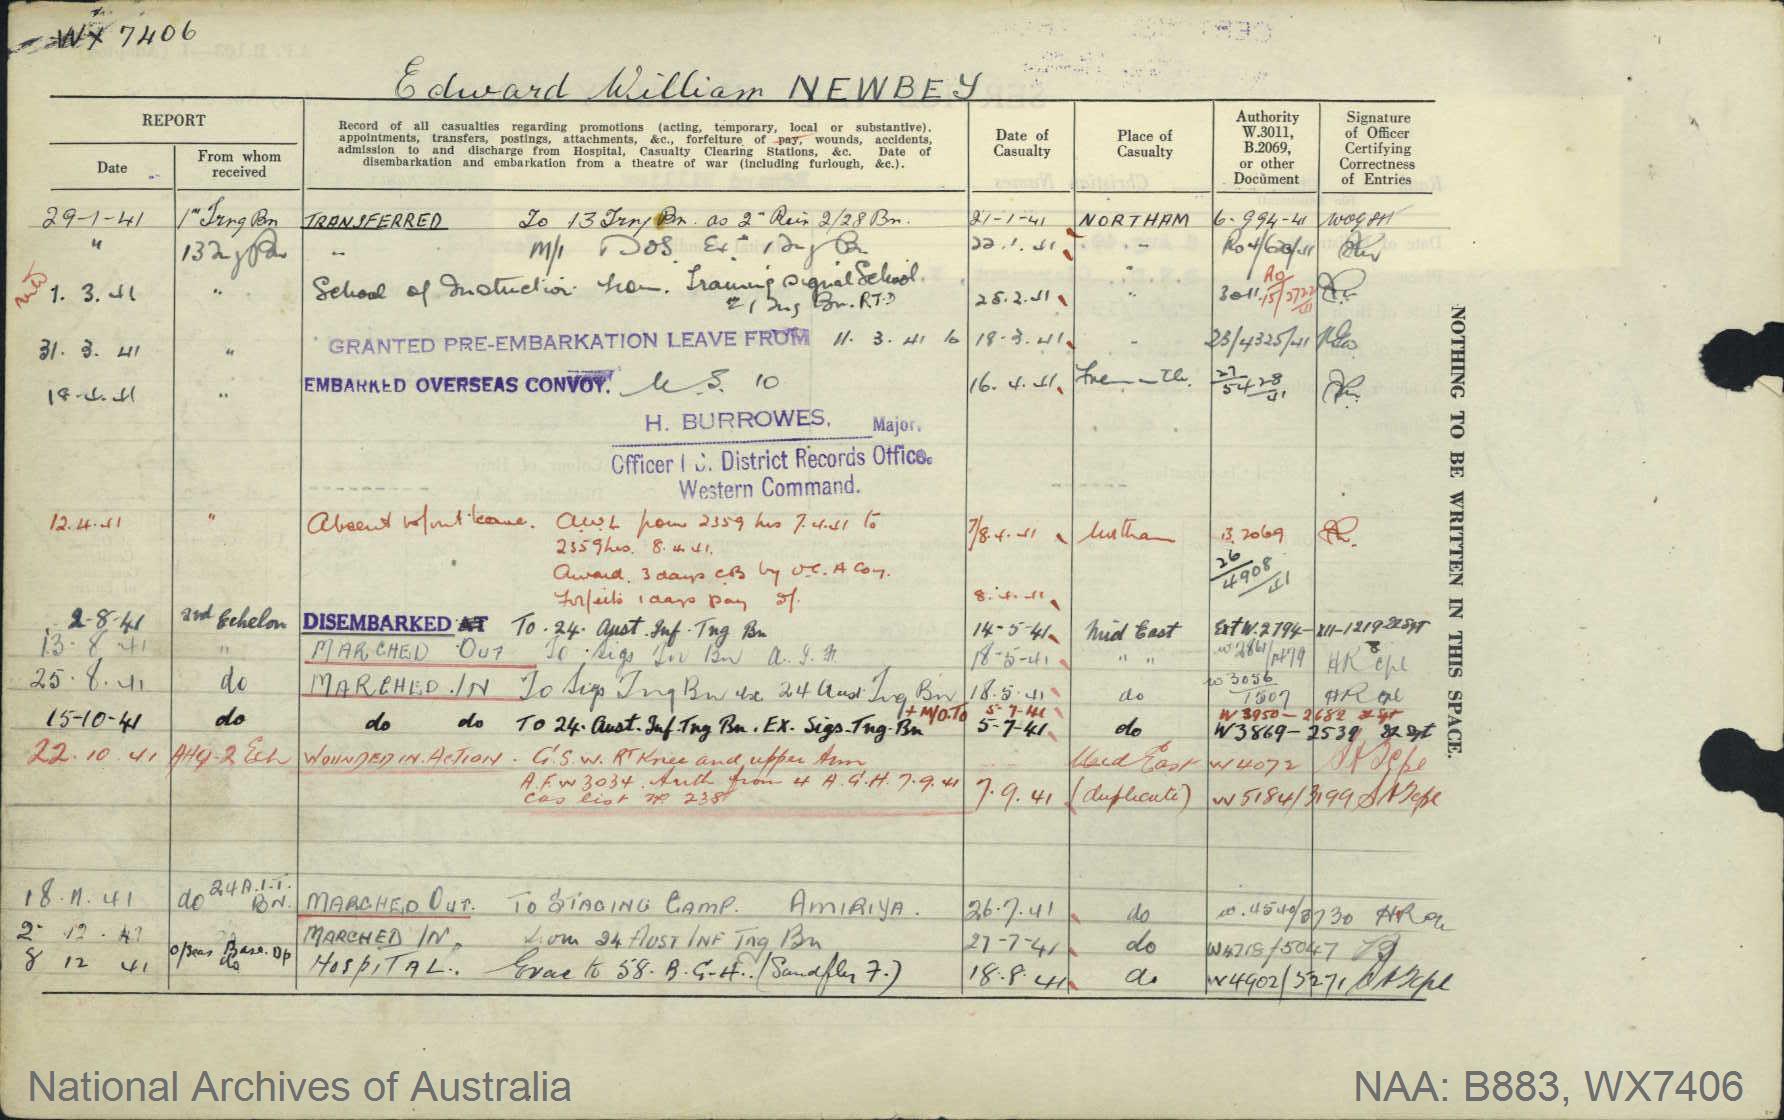 WX 7406
Edward William NEWBEY
REPORT
Date
From whom received
Record of all casualties regarding promotions (acting, temporary, local or substantive).
appointments, transfers, postings, attachments, &c., forfeiture of pay, wounds, accidents,
admission to and discharge from Hospital, Casualty Clearing Stations, &c. Date of
disembarkation and embarkation from a theatre of war (including furlough, &c.).
Date of Casualty
Place of Casualty
Authority W.3011, B.2069, or other Document
Signature of Officer Certifying Correctness of Entries
29-1-41 1st Trng Bn TRANSFERRED To 13 Trng Bn. as 2nd Rein 2/28 Bn. 21-1-41 NORTHAM 6-994-41
" 13 Trng Bn " M/I TOS. Ex 1 Trng Bn 22.1.41 "
1.3.41 " School of Instruction from Training Signal School 28.2.41 " 3011
1 Trng Bn. R.T.D
31.3.41 " GRANTED PRE-EMBARKATION LEAVE FROM 11.3.41 to 18.3.41 " 23/4325/41
18.4.41 " EMBARKED OVERSEAS CONVOY. U.S. 10 16.4.41 Fremantle. 27/5428/41
H. BURROWES, Major.
Officer I C. District Records Office.
Western Command.
12.4.41 " Absent without leave. A.W.L from 2359 hrs 7.4.41 to 7/8.4.41 Northam B.2069
2359 hrs. 8.4.41.
Award. 3 days CB by O.C. A Coy. 26/4908/41
Forfeits 1 days pay 8.4.41
2-8-41 2nd Echelon DISEMBARKED AT TO. 24. Aust. Inf. Tng Bn 14-5-41 Mid East Ext W.2794-
13-8-41 " MARCHED OUT To Sigs Tng Bn A.I.F. 18-5-41 " "
25.8.41 do MARCHED IN To Sigs Tng Bn ex 24 Aust Tng Bn 18.5.41 do W3056/1507
+ M/O. To 5-7-41 W 3950-2682
15-10-41 do do do TO 24. Aust. Inf. Tng Bn. EX. Sigs. Tng. Bn 5-7-41 do W3869-2539
22.10.41 AHQ-2 Ech WOUNDED IN ACTION. G.S.W. RT Knee and upper Arm Mid East W4072
A.F.W 3034. Auth from 4 A.G.H. 7.9.41 7.9.41 (duplicate) W5184/3199
Cas list No 238
18.11.41 do 24 A.I.T. BN. MARCHED OUT. TO STAGING CAMP. AMIRIYA. 26.7.41 do W.4540/3730
2-12-41 MARCHED IN, from 24 AUST INF Tng Bn 27-7-41 do W4718/5047
8 12 41 O/seas Base. Dp do HOSPITAL. Evac to 58. B.G.H. (Sandfly F.) 18.8.41 do W4902/5271
NOTHING TO BE WRITTEN IN THIS SPACE.
National Archives of Australia
NAA: B883, WX7406